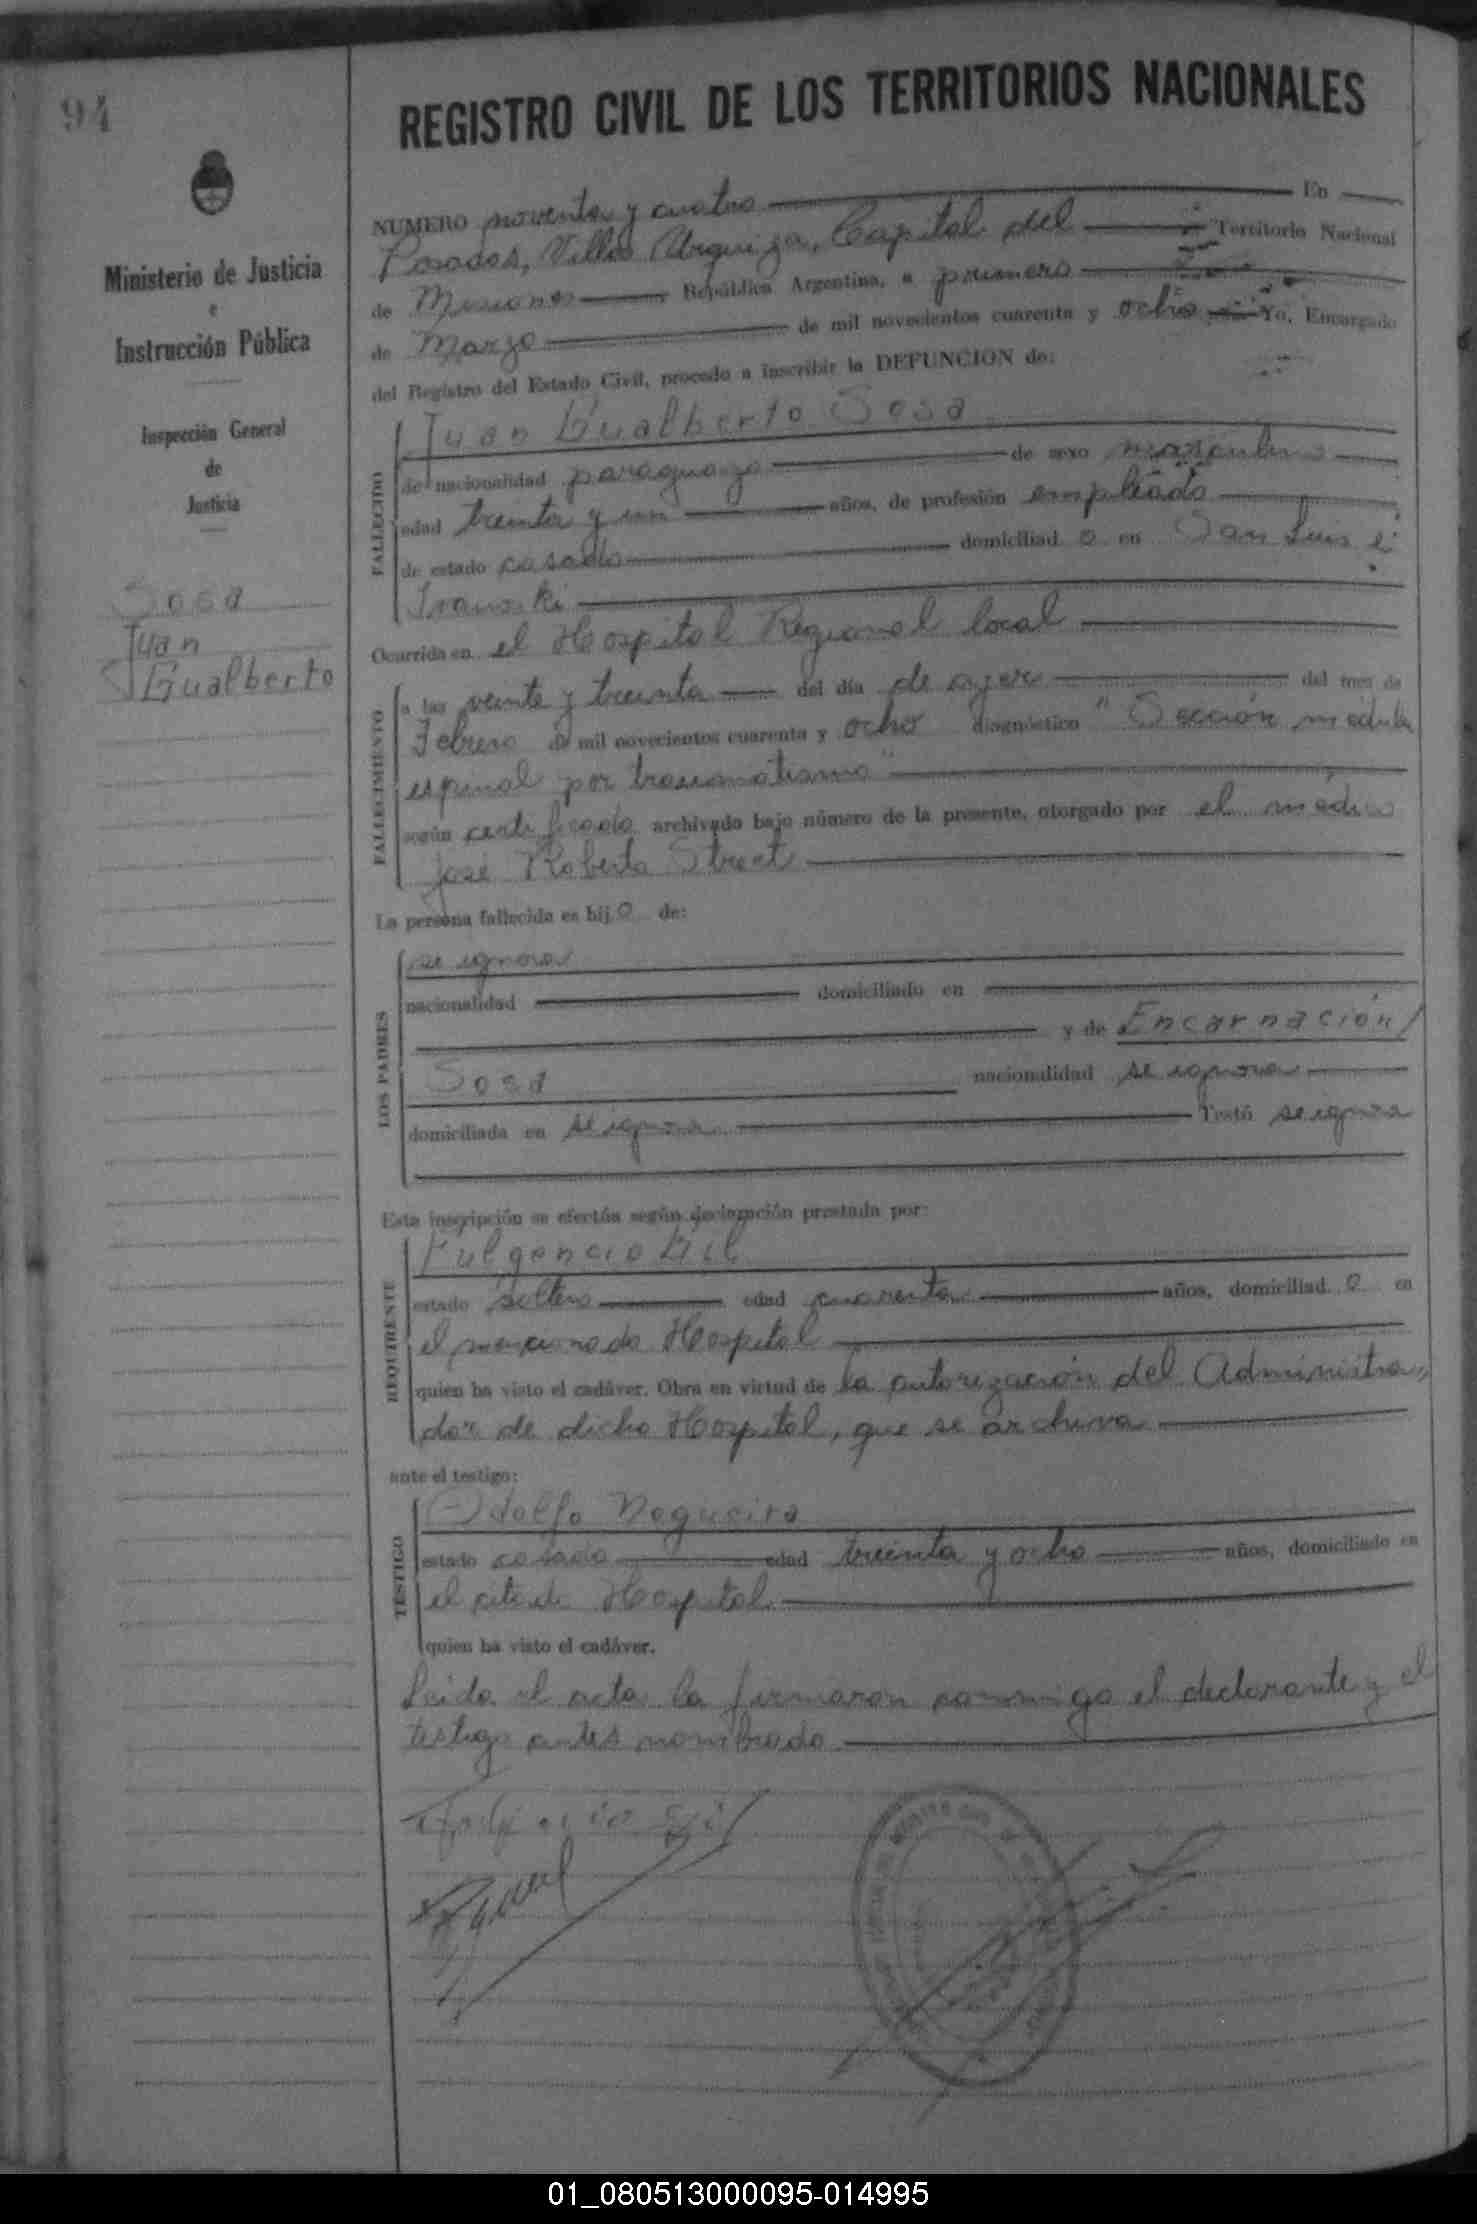 94
REGISTRO CIVIL DE LOS TERRITORIOS NACIONALES
Ministerio de Justicia
e
Instrucción Pública
Inspección General
de
Justicia
Sosa
Juan
Gualberto
NUMERO noventa y cuatro En
Posadas, Villa Urquiza, Capital del Territorio Nacional
de Misiones República Argentina, a primero
de Marzo de mil novecientos cuarenta y ocho Yo, Encargado
del Registro del Estado Civil, procedo a inscribir la DEFUNCION de:
FALLECIDO
Juan Gualberto Sosa
de nacionalidad paraguaya de sexo masculino
edad treinta y un años, de profesión empleado
de estado casado domiciliad o en San Luis é
Iranoski
Ocurrida en el Hospital Regional local
FALLECIMIENTO
a las veinte y treinta del día de ayer del mes de
Febrero de mil novecientos cuarenta y ocho diagnóstico "Sección médula
espinal por traumatismo"
según certificado archivado bajo número de la presente, otorgado por el médico
José Roberto Street
La persona fallecida es hij o de:
LOS PADRES
se ignora
nacionalidad domiciliado en
y de Encarnación
Sosa nacionalidad se ignora
domiciliada en se ignora Testó se ignora
Esta inscripción se efectúa según declaración prestada por:
REQUIRENTE
Fulgencio Gil
estado soltero edad cuarenta años, domiciliad o en
el mencionado Hospital
quien ha visto el cadáver. Obra en virtud de la autorización del Administra-
dor de dicho Hospital, que se archiva
ante el testigo:
TESTIGO
Odolfo Nogueira
estado casado edad treinta y ocho años, domiciliado en
el citado Hospital
quien ha visto el cadáver.
Leida el acta la firmaron conmigo el declarante y el
testigo antes nombrado
01_080513000095-014995